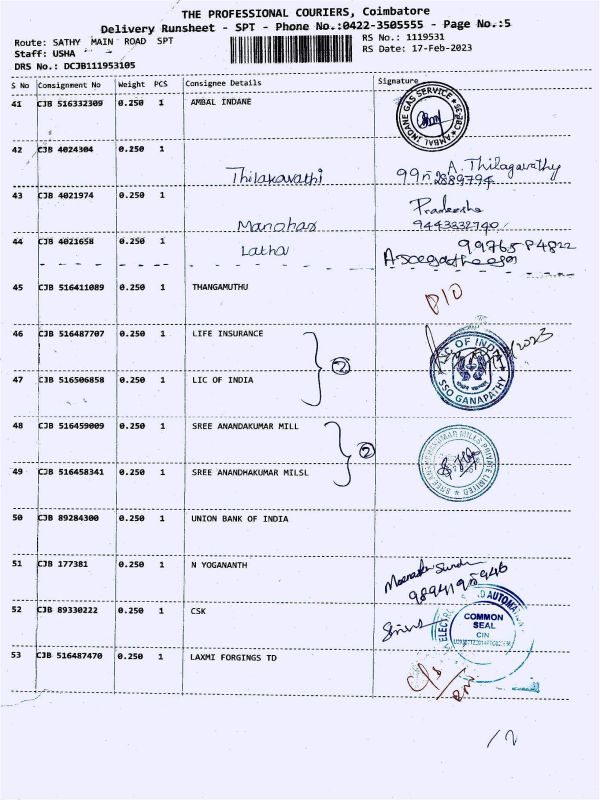 THE PROFESSIONAL COURIERS, Coimbatore
Delivery Runsheet - SPT - Phone No.:0422-3505555 - Page No.:5
Route: SATHY MAIN ROAD SPT
RS No.: 1119531
Staff: USHA
RS Date: 17-Feb-2023
DRS No.: DCJB111953105
S No Consignment No Weight PCS Consignee Details Signature
41 CJB 516332309 0.250 1 AMBAL INDANE
AMBAL INDANE GAS SERVICE CBE-35
42 CJB 4024304 0.250 1
Thilakavathi A. Thilagavathy
43 CJB 4021974 0.250 1
Manohar 9443332740
44 CJB 4021658 0.250 1 Latha
45 CJB 516411089 0.250 1 THANGAMUTHU
46 CJB 516487707 0.250 1 LIFE INSURANCE
2
LIC OF INDIA
SSO GANAPATHY
47 CJB 516506858 0.250 1 LIC OF INDIA
48 CJB 516459009 0.250 1 SREE ANANDAKUMAR MILL
2
SREE ANANDHAKUMAR MILLS PRIVATE LIMITED
49 CJB 516458341 0.250 1 SREE ANANDHAKUMAR MILSL
50 CJB 89284300 0.250 1 UNION BANK OF INDIA
51 CJB 177381 0.250 1 N YOGANANTH
52 CJB 89330222 0.250 1 CSK
COMMON
SEAL
CIN
53 CJB 516487470 0.250 1 LAXMI FORGINGS TD